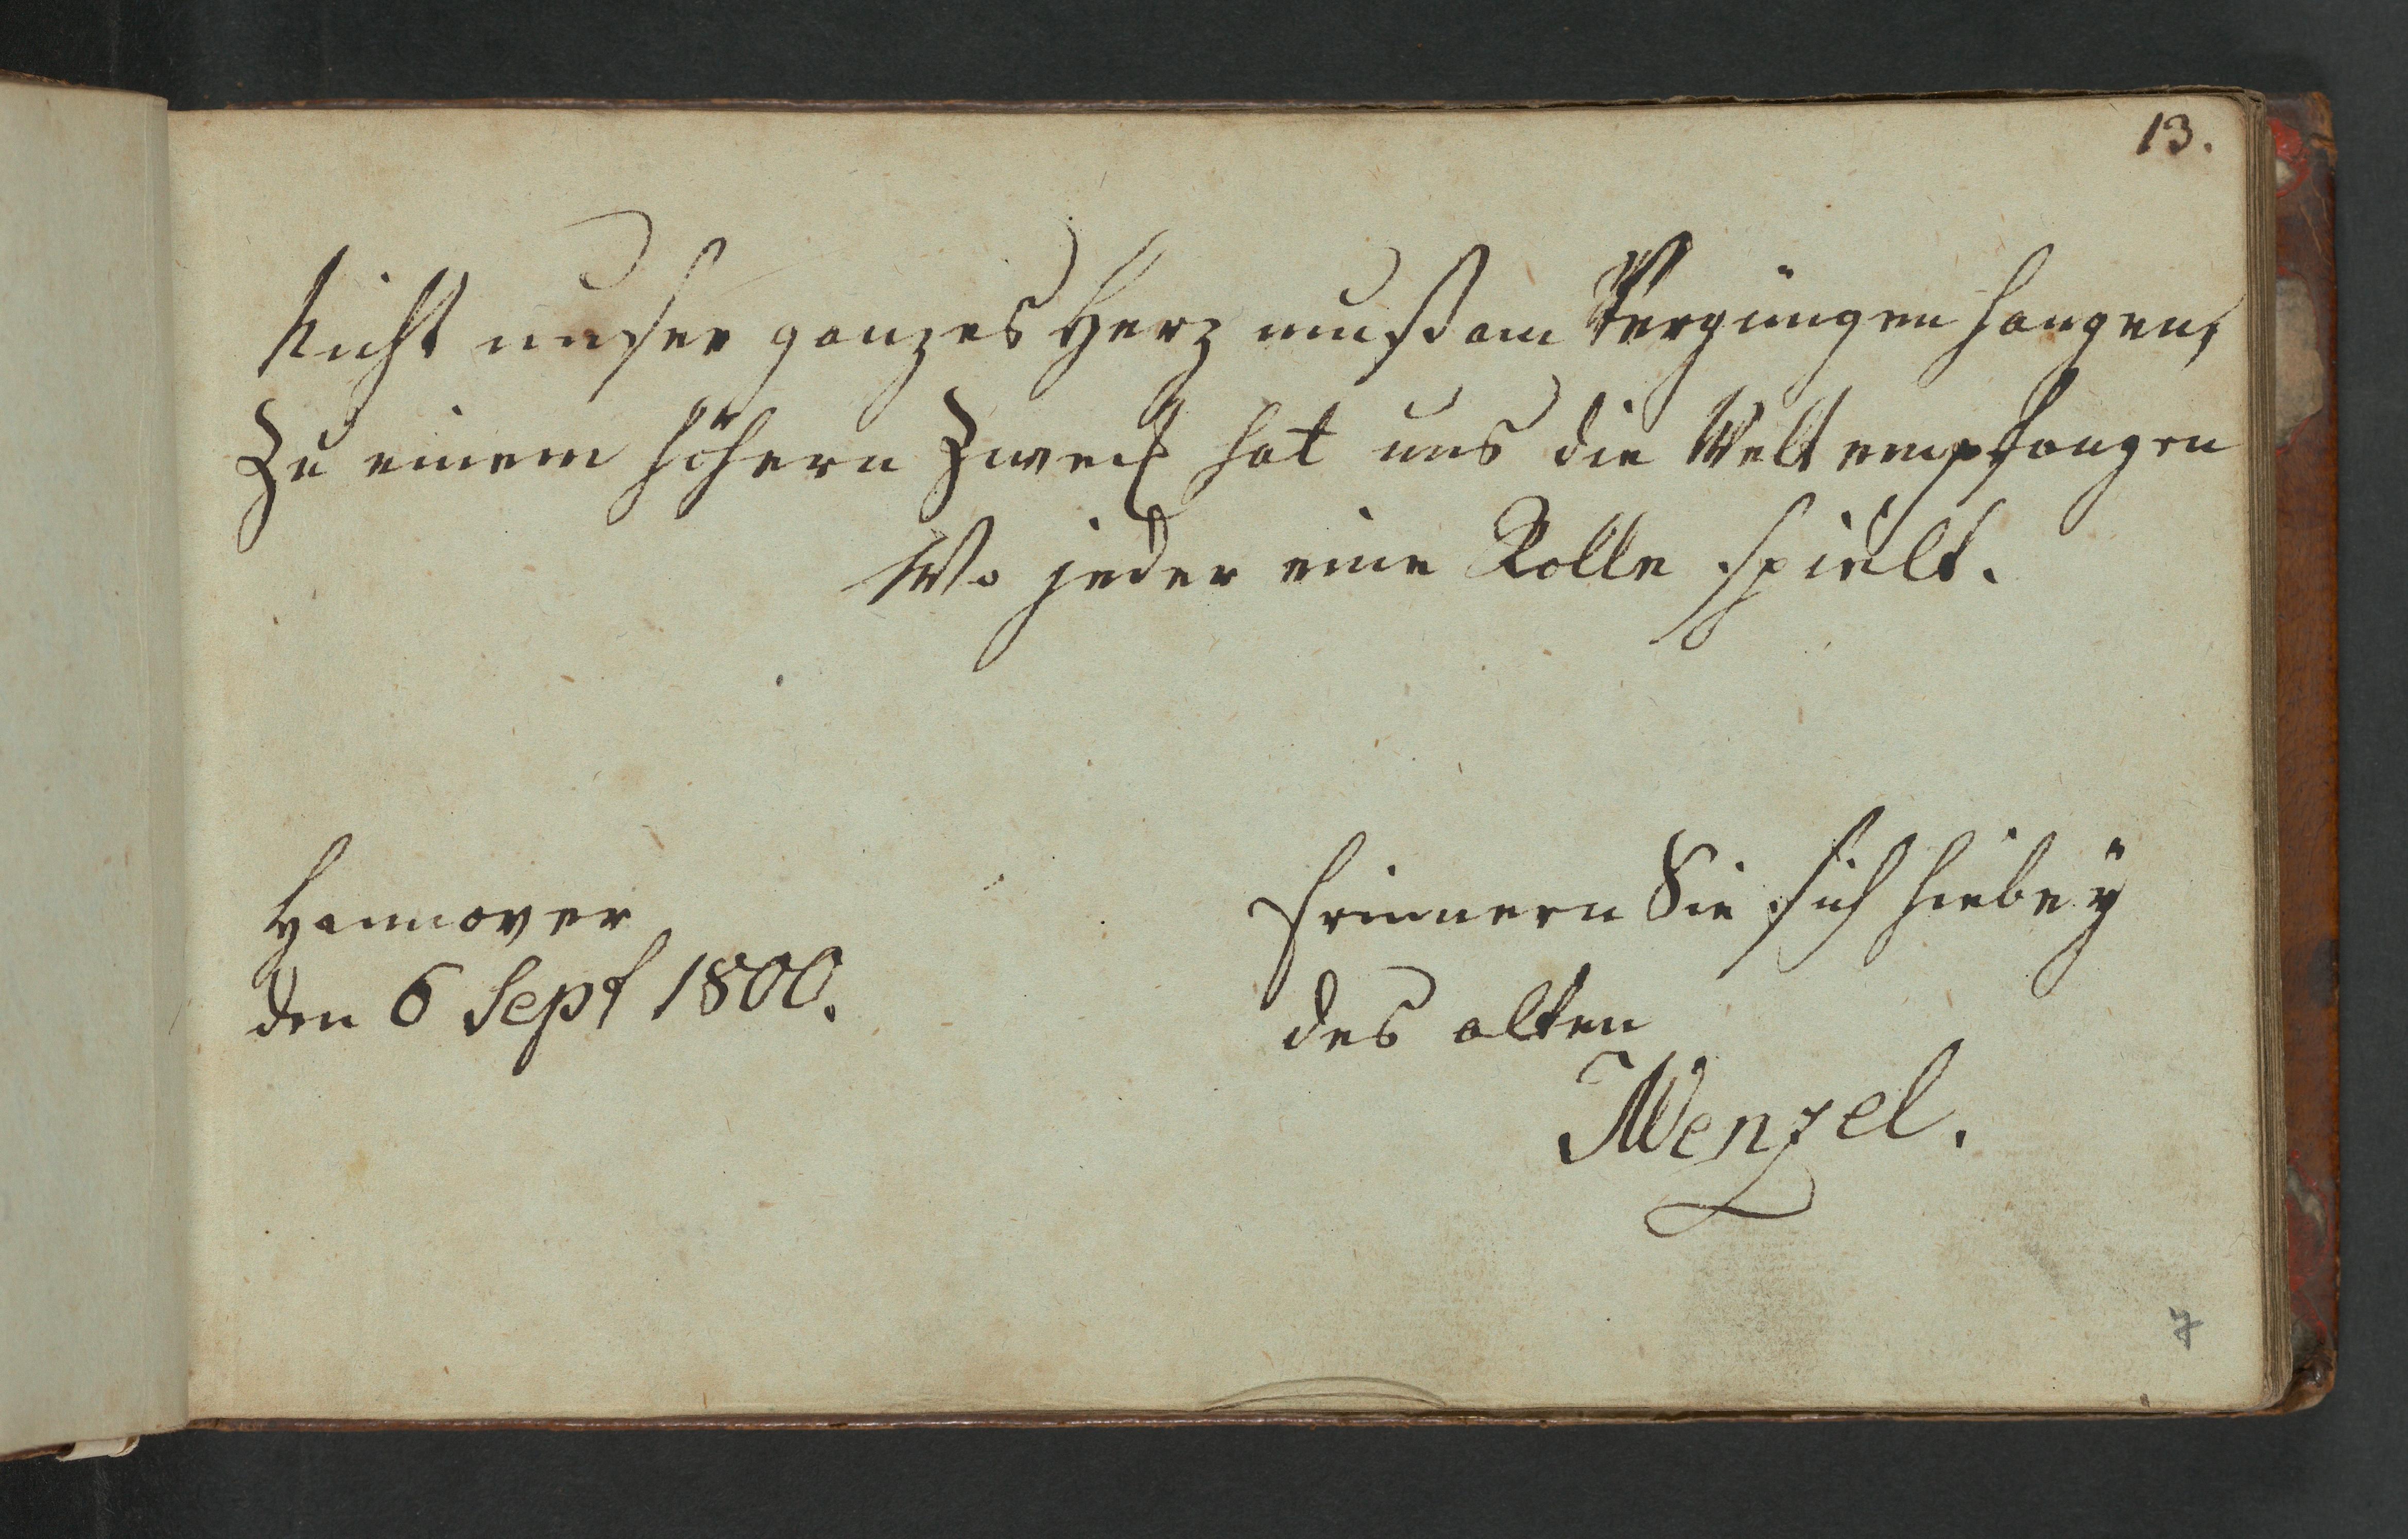 13.
Nicht unser ganzes Herz muß am Vergnügen hangen,
Zu einem höhern Zweck hat uns die Welt empfangen
Wo jeder eine Rolle spielt.
Hannover
den 6 Sept 1800.
Erinnern Sie sich hiebey
des alten
Wenzel.
7